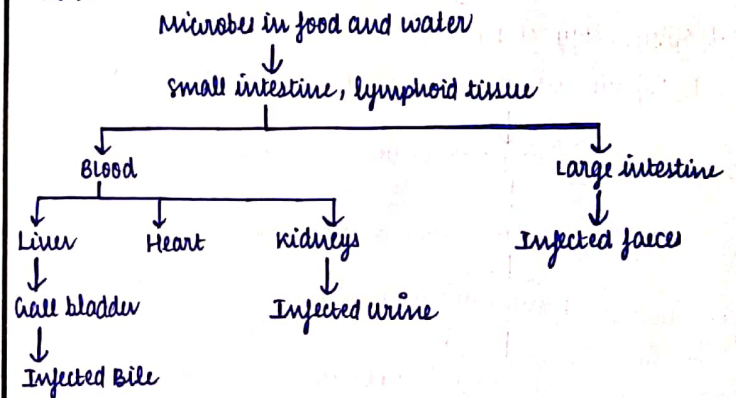 Microbes in food and water
Small intestine, lymphoid tissue
Blood Large intestine
Liver Heart Kidneys Infected faeces
Gall bladder Infected urine
Infected Bile